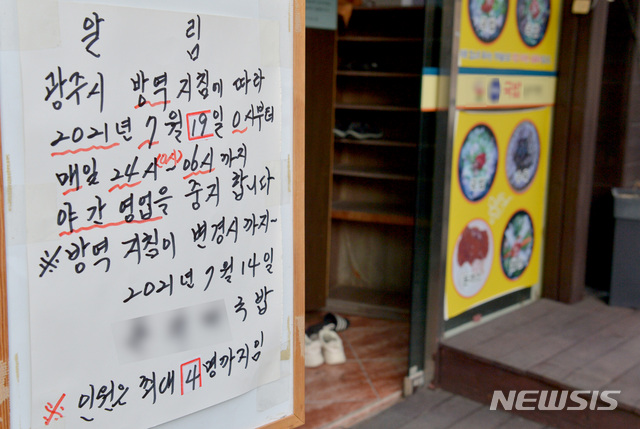 알 림
광주시 방역 지침에 따라
2021년 7월 19일 0시부터
매일 24시(0시)~06시까지
야간 영업을 중지 합니다
※ 방역 지침이 변경시까지~
2021년 7월 14일
국밥
※ 인원은 최대 4명까지임
국밥
NEWSIS